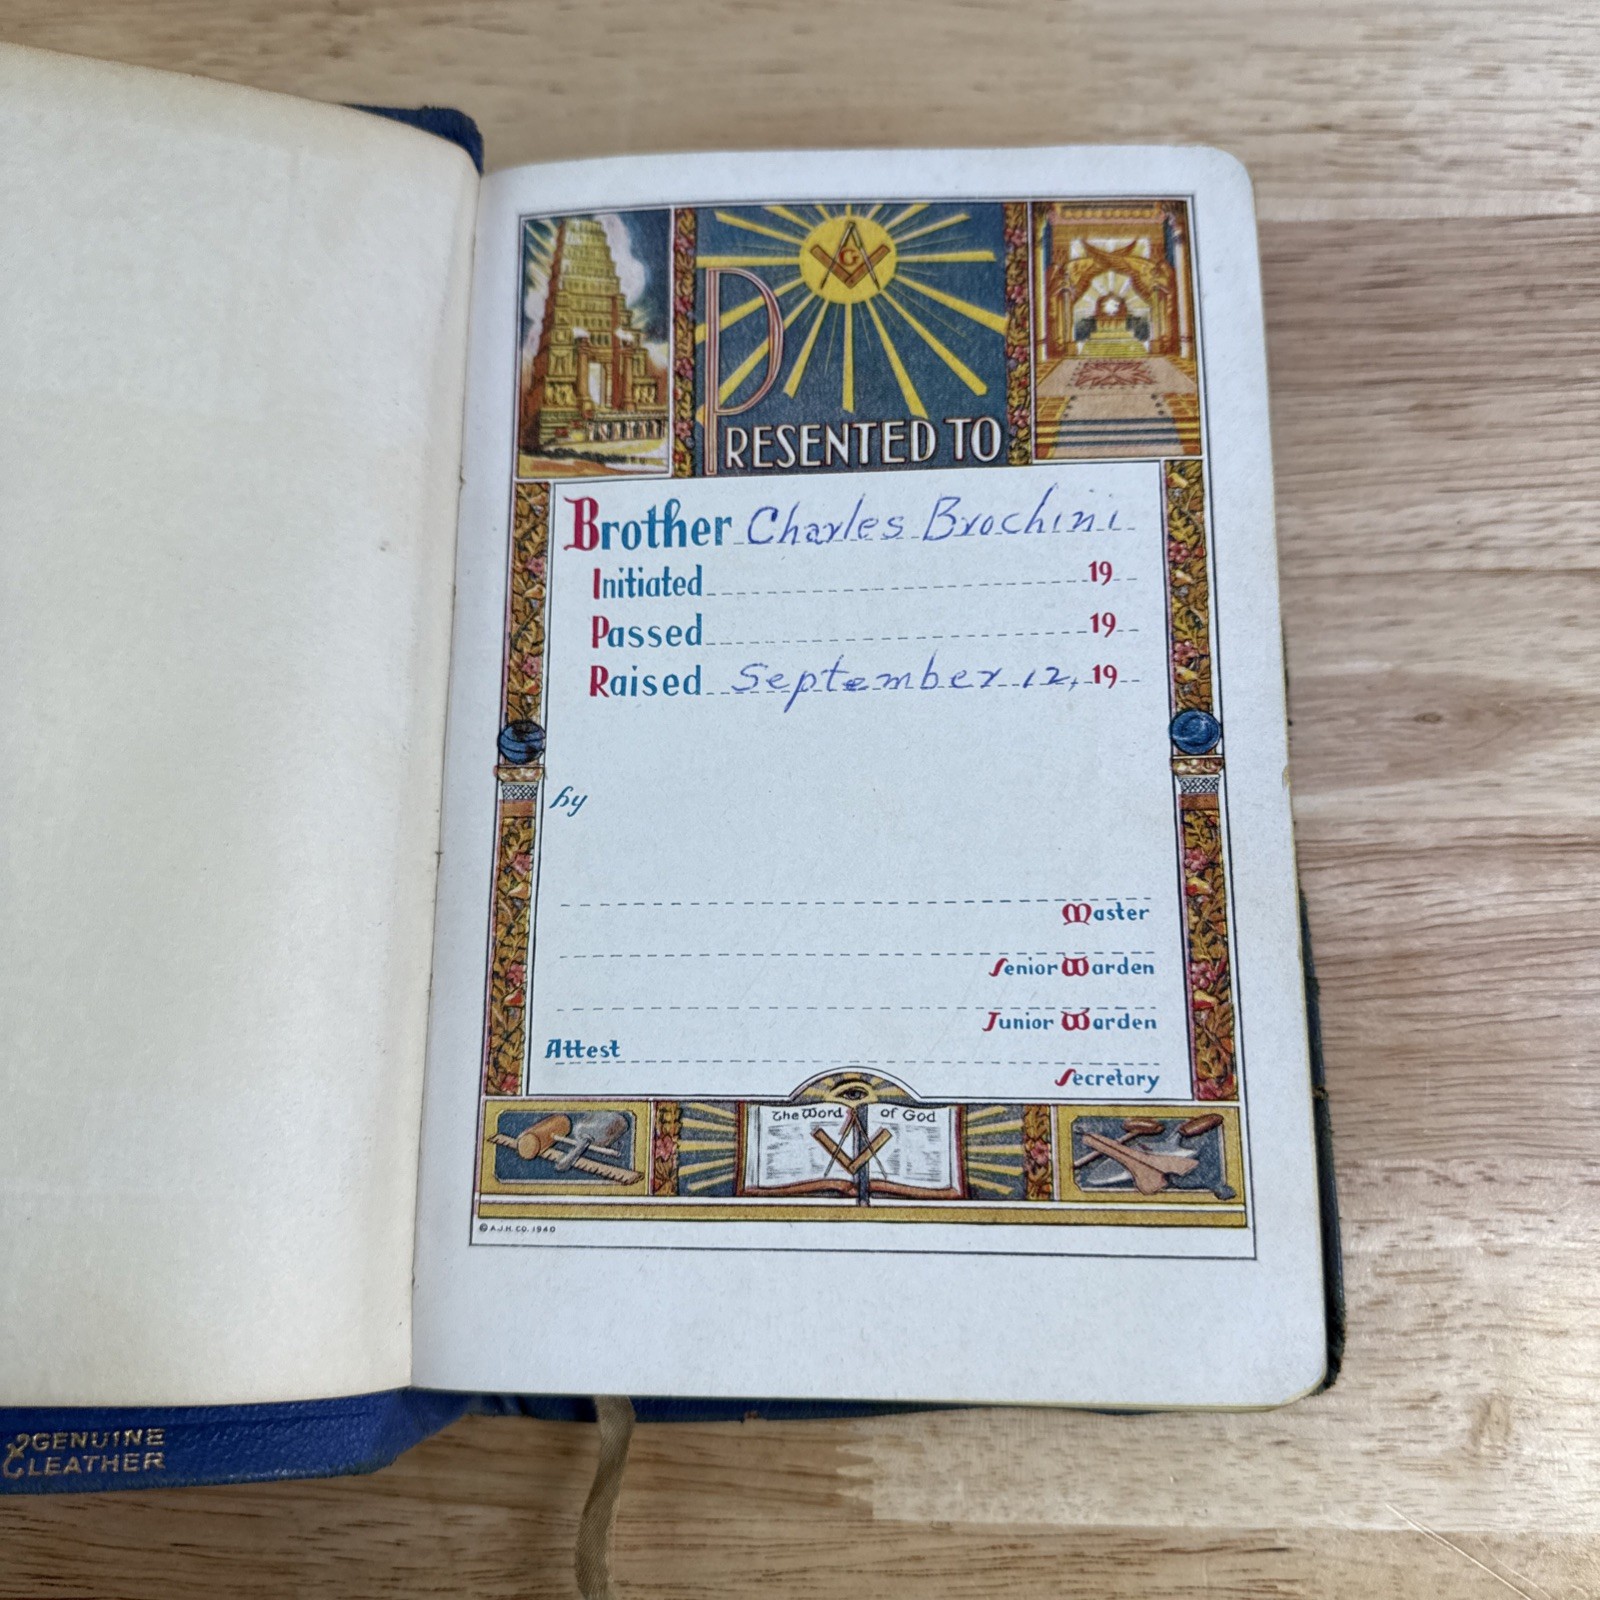 G
PRESENTED TO
Brother Charles Brochini
Initiated 19
Passed 19
Raised September 12, 19
by
Master
Senior Warden
Junior Warden
Attest
Secretary
The Word of God
© A.J.H. CO. 1940
GENUINE
LEATHER